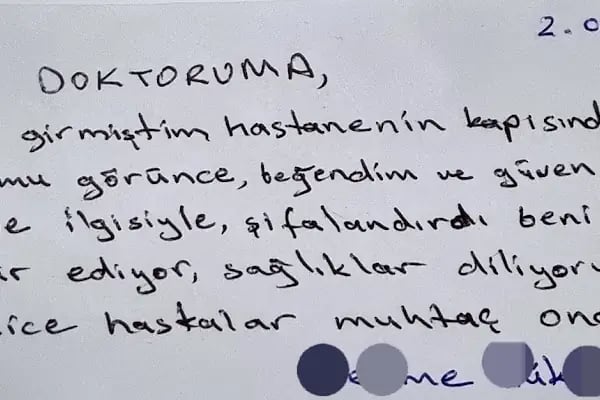 2.0
DOKTORUMA,
girmiştim hastanenin kapısınd
mu görünce, beğendim ve güven
e ilgisiyle, şifalandırdı beni
ir ediyor, sağlıklar diliyoru
ice hastalar muhtaç on